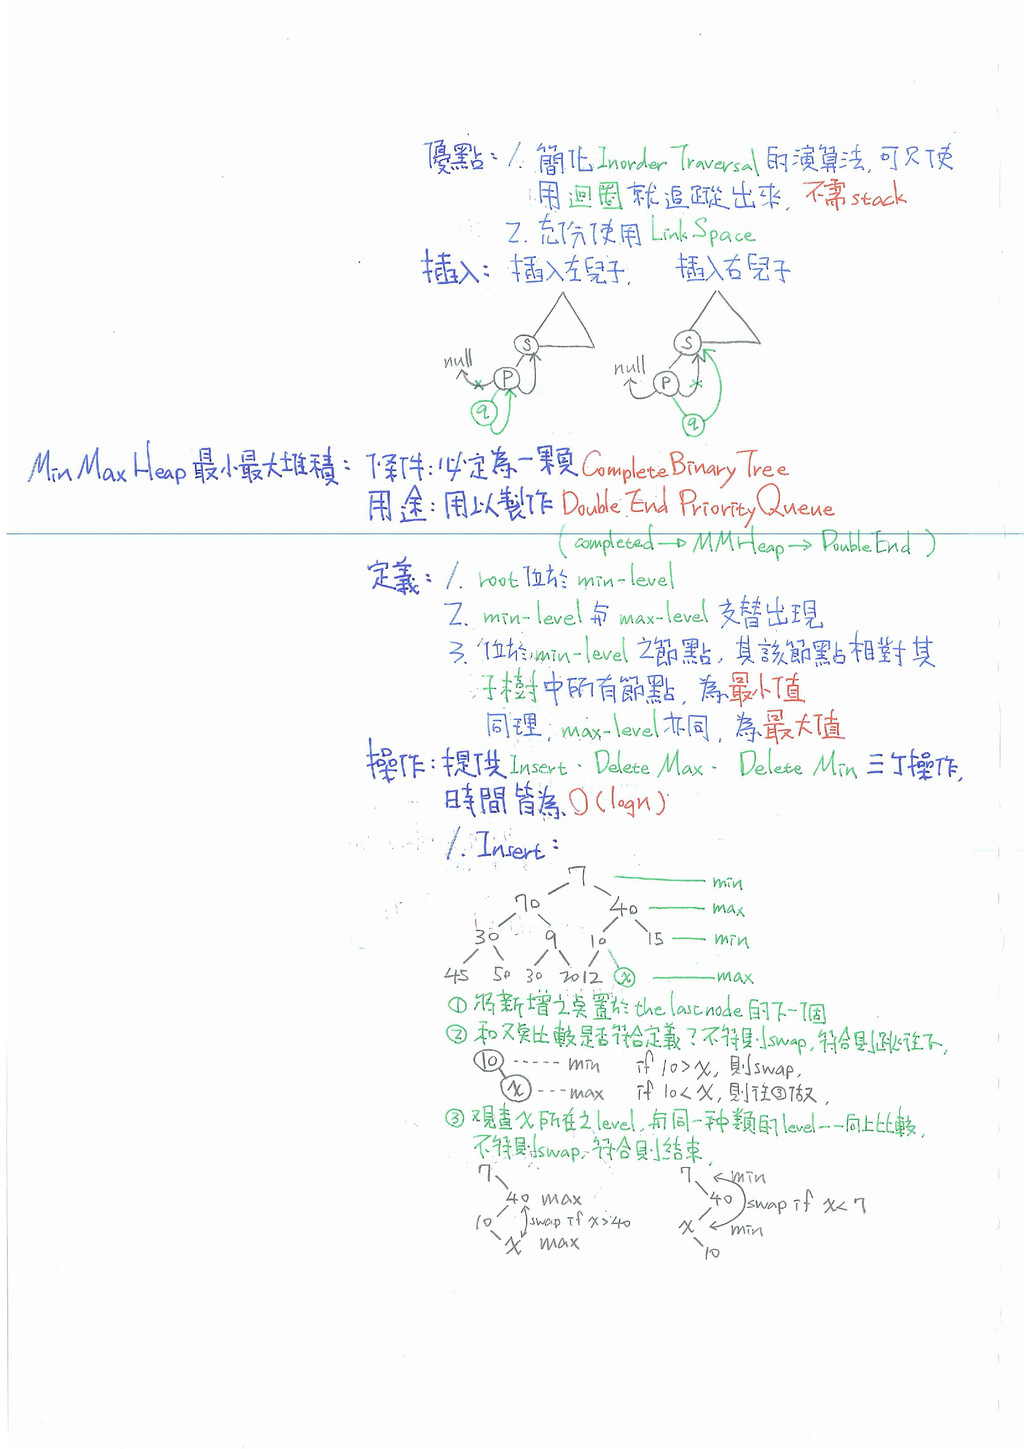 優點: 1. 簡化 Inorder Traversal 的演算法, 可只使
用迴圈就追蹤出來, 不需stack
2. 充份使用 Link Space
插入: 插入左兒子, 插入右兒子
S S
null null
P P
q q
Min Max Heap 最小最大堆積: 條件: 必定為一顆 Complete Binary Tree
用途: 用以製作 Double End Priority Queue
(completed → MMHeap → Double End)
定義: 1. root 位於 min-level
2. min-level 與 max-level 交替出現
3. 位於 min-level 之節點, 其該節點相對其
子樹中所有節點, 為最小值
同理, max-level 亦同, 為最大值
操作: 提供 Insert、Delete Max、Delete Min 三個操作,
時間皆為 O(logn)
1. Insert:
7 min
70 40 max
30 9 10 15 min
45 50 30 20 12 x max
① 將新增之點置於 the last node 的下一個
② 和父點比較是否符合定義? 不符則swap, 符合則跳往下,
10 ----- min if 10 > x, 則swap,
x --- max if 10 < x, 則往③做,
③ 觀查 x 所在之level, 與同一種類的level一一向上比較,
不符則swap, 符合則結束,
7 7 min
40 max 40 swap if x < 7
10 swap if x > 40 x min
x max 10